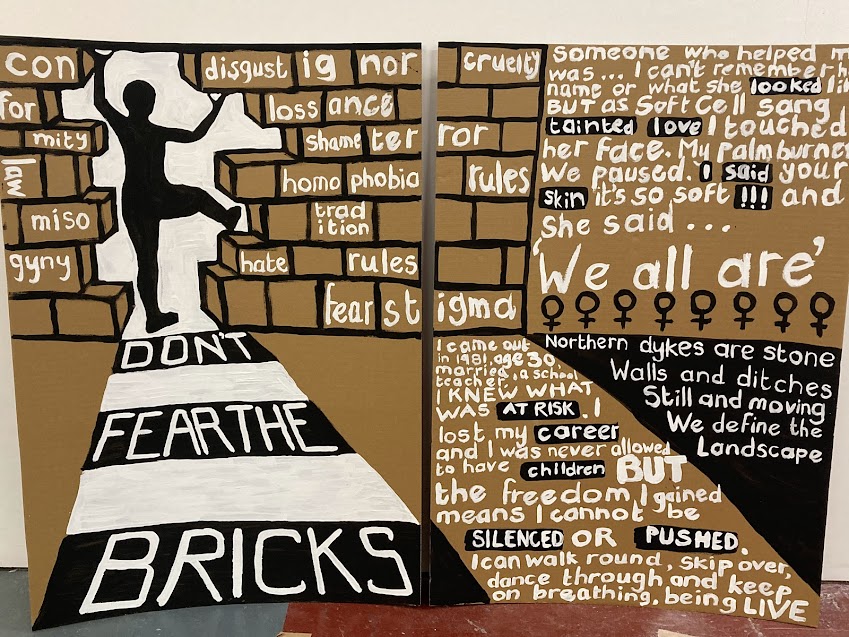 con disgust ig nor
for loss ance
mity shame ter
law homo phobia
miso trad
ition
gyny hate rules
fear st
DON'T
FEAR THE
BRICKS
cruelty
ror
rules
igma
Someone who helped m
was... I can't remember h
name or what she looked li
BUT as Soft Cell sang
tainted love I touched
her face. My palm burne
We paused. I said your
skin it's so soft !!! and
She said ...
'We all are'
♀ ♀ ♀ ♀ ♀ ♀ ♀ ♀
I came out
in 1981, age 30,
married, a school
teacher.
I KNEW WHAT
WAS AT RISK. I
lost my career
and I was never allowed
to have children BUT
the freedom I gained
means I cannot be
SILENCED OR PUSHED.
I can walk round, skip over,
dance through and keep
on breathing, being LIVE
Northern dykes are stone
Walls and ditches
Still and moving
We define the
Landscape